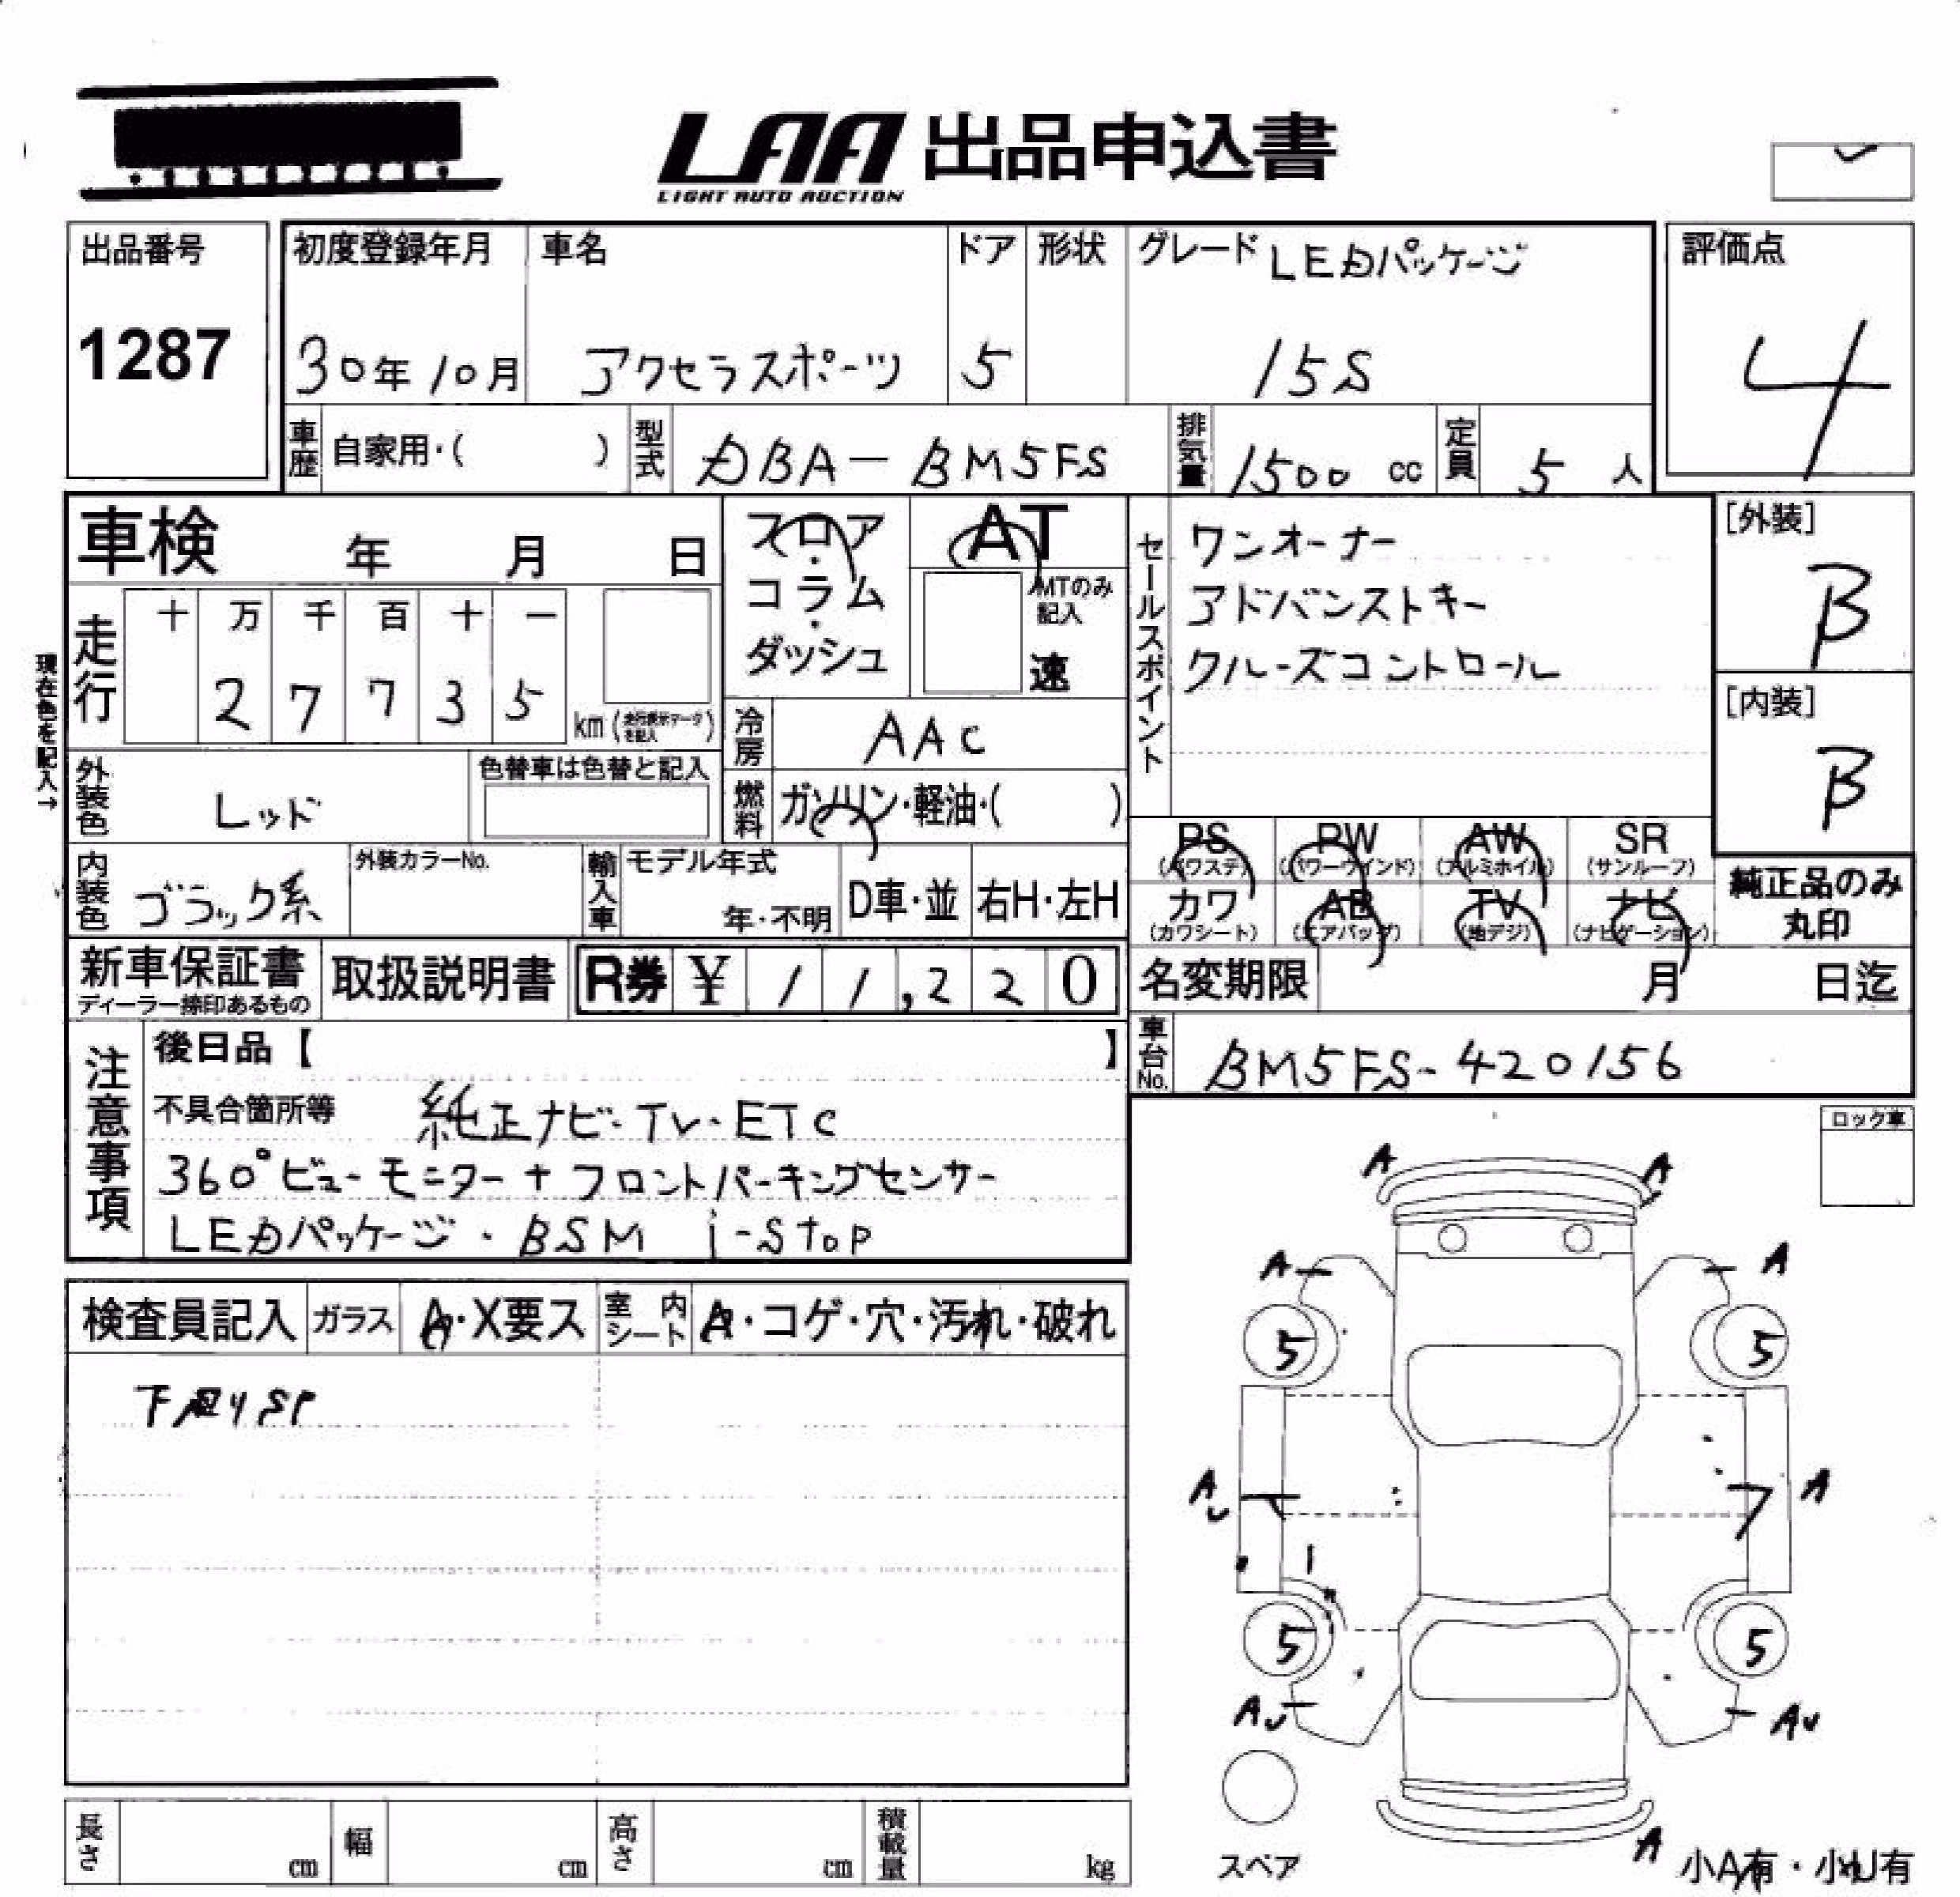 LAA 出品申込書
LIGHT AUTO AUCTION
出品番号
1287
初度登録年月
30年10月
車名
アクセラスポーツ
ドア
5
形状
グレード LEDパッケージ
15S
評価点
4
車歴 自家用・( )
型式 DBA-BM5FS
排気量 1500 cc
定員 5 人
車検 年 月 日
走行
十 万 千 百 十 一
2 7 7 3 5
km (走行表示データを記入)
現在色を記入→
外装色 レッド
色替車は色替と記入
内装色 ブラック系
外装カラーNo.
フロア・コラム・ダッシュ
AT
MTのみ記入
速
冷房 AAC
燃料 ガソリン・軽油・( )
輸入車 モデル年式
年・不明
D車・並
右H・左H
セールスポイント
ワンオーナー
アドバンストキー
クルーズコントロール
[外装]
B
[内装]
B
PS (パワステ)
PW (パワーウインド)
AW (アルミホイル)
SR (サンルーフ)
カワ (カワシート)
AB (エアバッグ)
TV (地デジ)
ナビ (ナビゲーション)
純正品のみ
丸印
新車保証書
ディーラー捺印あるもの
取扱説明書
R券 ¥ 11,220
名変期限 月 日迄
車台No. BM5FS-420156
注意事項
後日品【 】
不具合箇所等 純正ナビ・TV・ETC
360°ビューモニター+フロントパーキングセンサー
LEDパッケージ・BSM i-stop
検査員記入
ガラス A・X要ス
室内シート A・コゲ・穴・汚れ・破れ
ロック車
A A
A A
5 5
AU A
5 5
AU AU
スペア
A
小A有・小U有
長さ cm
幅 cm
高さ cm
積載量 kg